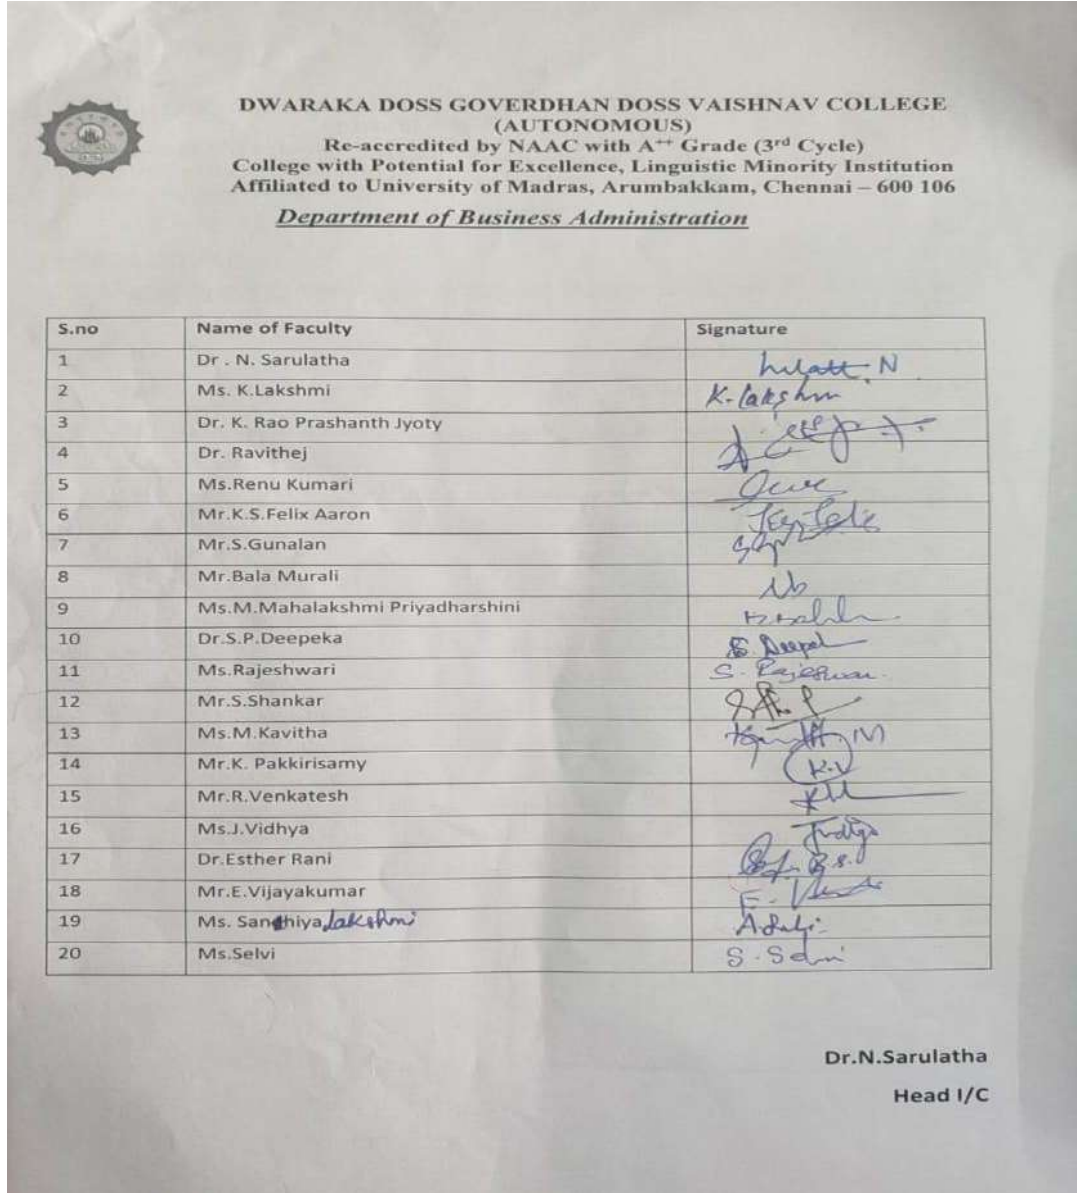 DWARAKA DOSS GOVERDHAN DOSS VAISHNAV COLLEGE
(AUTONOMOUS)
Re-accredited by NAAC with A++ Grade (3rd Cycle)
College with Potential for Excellence, Linguistic Minority Institution
Affiliated to University of Madras, Arumbakkam, Chennai – 600 106
Department of Business Administration
S.no Name of Faculty Signature
1 Dr . N. Sarulatha
2 Ms. K.Lakshmi K. Lakshm
3 Dr. K. Rao Prashanth Jyoty
4 Dr. Ravithej
5 Ms.Renu Kumari
6 Mr.K.S.Felix Aaron
7 Mr.S.Gunalan
8 Mr.Bala Murali
9 Ms.M.Mahalakshmi Priyadharshini
10 Dr.S.P.Deepeka
11 Ms.Rajeshwari S. Rajeswari
12 Mr.S.Shankar
13 Ms.M.Kavitha
14 Mr.K. Pakkirisamy K.V
15 Mr.R.Venkatesh
16 Ms.J.Vidhya
17 Dr.Esther Rani
18 Mr.E.Vijayakumar
19 Ms. Sandhiya Lakshmi
20 Ms.Selvi S. Selvi
Dr.N.Sarulatha
Head I/C